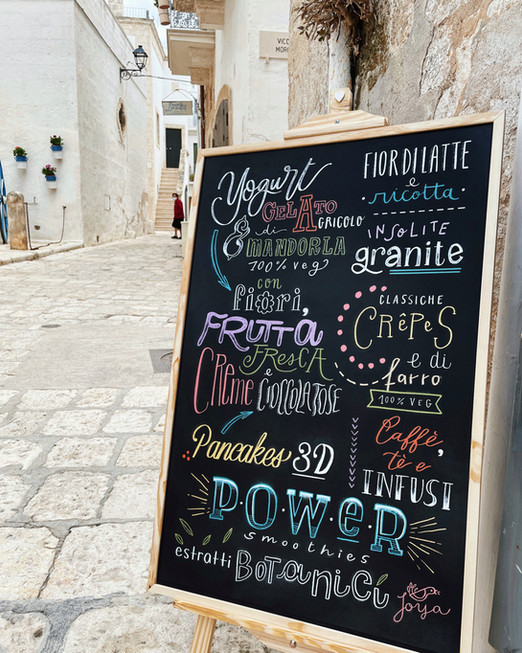 Yogurt
GELATO
di GRICOLO
& MANDORLA
100% veg
con
fiori,
FRUTTA
FRESCA
e
CREME CIOCCOLATOSE
Pancakes 3D
FIORDILATTE
e
ricotta
INSOLITE
granite
CLASSICHE
CRÊPES
e di
farro
100% VEG
Caffè,
tè e
INFUSI
P.O.W.e.R
smoothies
estratti BOTanici
Joya
VICO